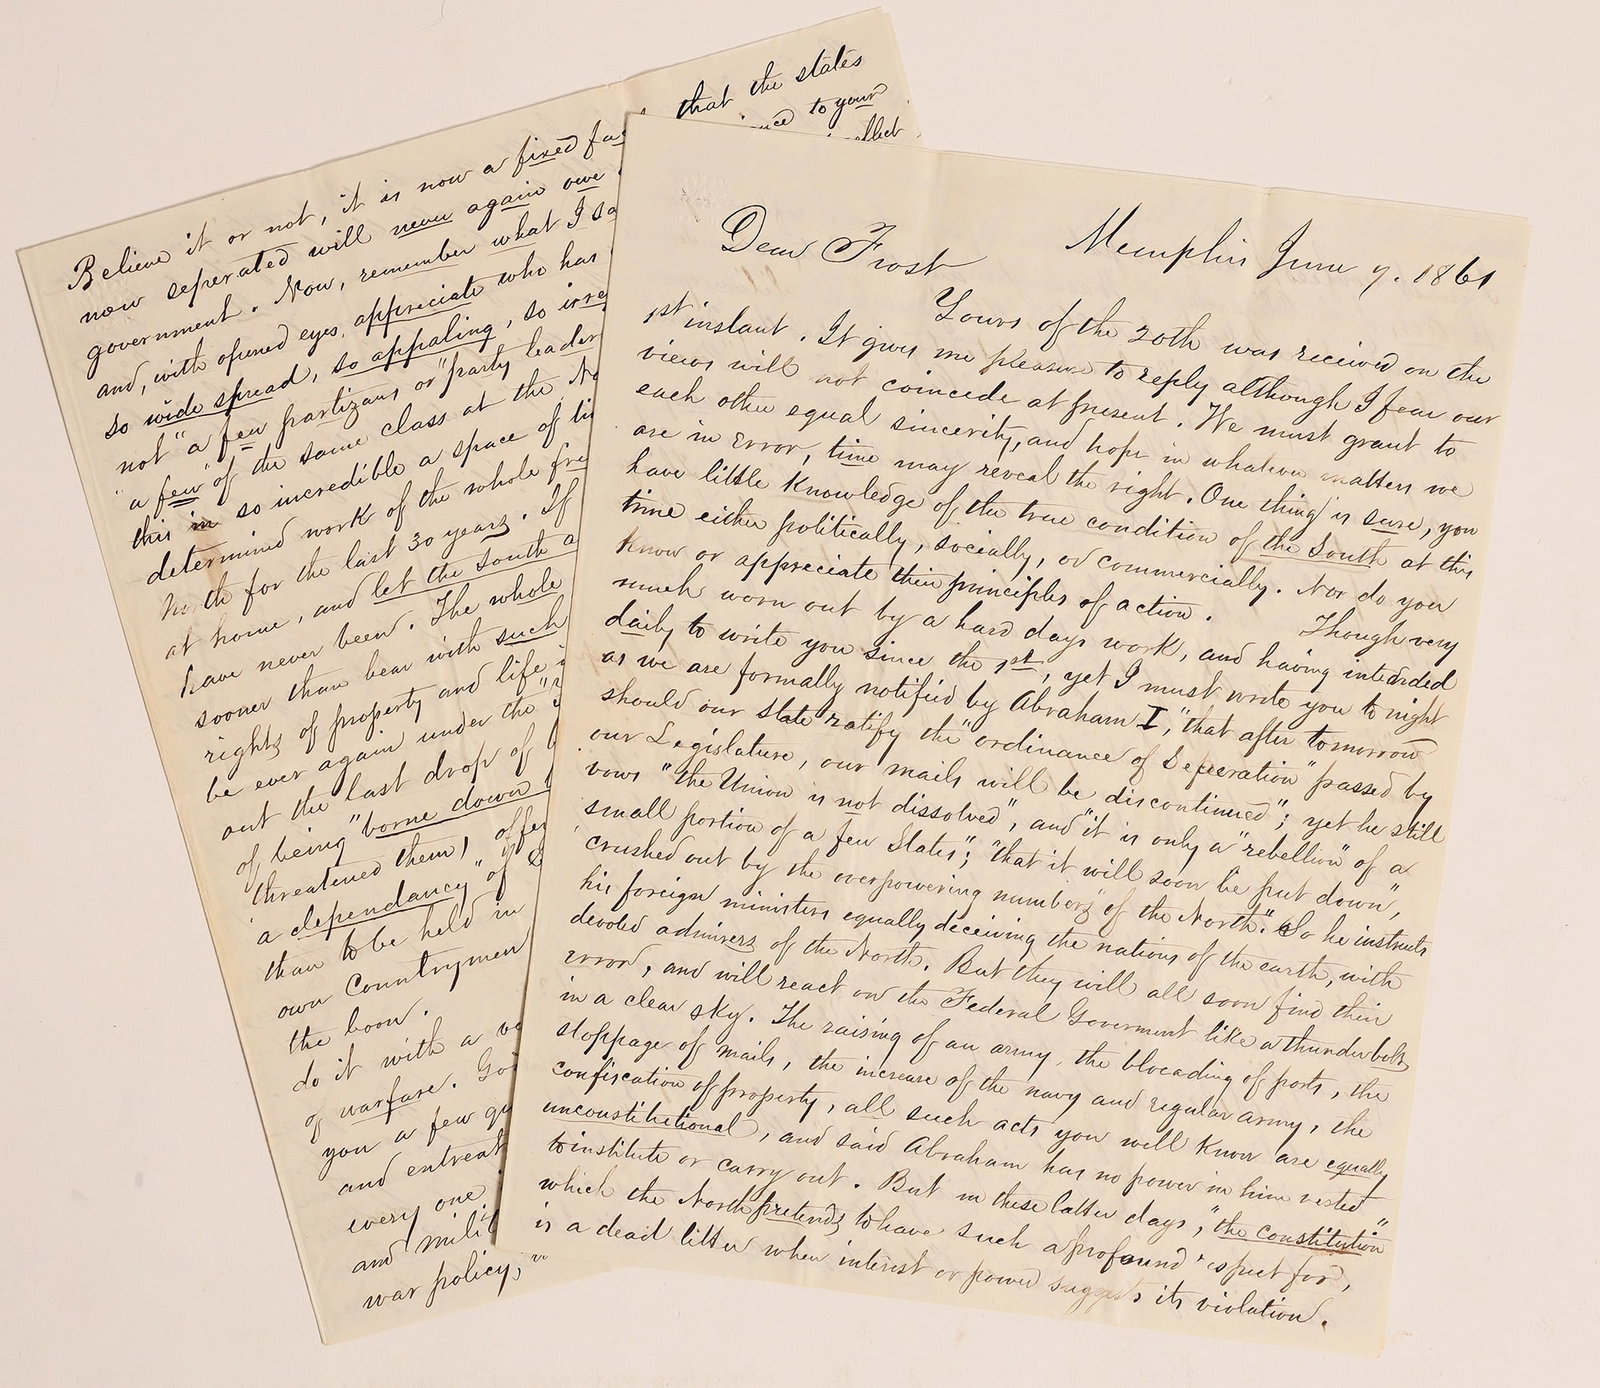 Dear Frost
Memphis June 7. 1861
Yours of the 20th was received on the
1st instant. It gives me pleasure to reply although I fear our
views will not coincede at present. We must grant to
each other equal sincerity, and hope in whatever matters we
are in error, time may reveal the right. One thing is sure, you
have little knowledge of the true condition of the South at this
time either politically, socially, or commercially. Nor do you
know or appreciate their principles of action. Though very
much worn out by a hard days work, and having intended
daily to write you since the 1st, yet I must write you to night
as we are formally notified by Abraham I, "that after tomorrow
should our state ratify the "ordinance of Seperation" passed by
our Legislature, our mails will be discontinued"; yet he still
vows "the Union is not dissolved", and "it is only a "rebellion" of a
small portion of a few States"; "that it will soon be put down",
"crushed out by the overpowering numbers of the North." So he instructs
his foreign ministers equally deceiving the nations of the earth, with
devoted admirers of the North. But they will all soon find their
error, and will react on the Federal Goverment like a thunderbolt
in a clear sky. The raising of an army, the blocading of ports, the
stoppage of mails, the increase of the navy and regular army, the
confiscation of property, all such acts you well know are equally
unconstitutional, and said Abraham has no power in him vested
to institute or carry out. But in these latter days, "the constitution"
which the North pretends to have such a profound respect for,
is a dead letter when interest or power suggests its violation.
Believe it or not, it is now a fixed that the states
now seperated will never again owe to your
government. Now, remember what I
and, with opened eyes, appreciate who has
so wide spread, so appaling, so
not "a few partizans or "party leader
"a few" of the same class at the
this in so incredible a space of
determined work of the whole
North for the last 30 years. If
at home, and let the South
have never been. The whole
sooner than bear with such
rights of property and life
be ever again under the
out the last drop of
of being "borne down
threatened them,
"a dependancy" of
than to be held in
own Countrymen
the boon.
do it with a
of warfare.
you a few
and entreat
every one
and
war policy,